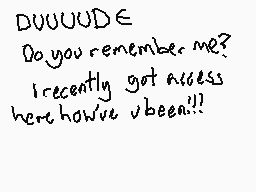 DUUUUDE
Do you remember me?
I recently got access
here how've u been!!!